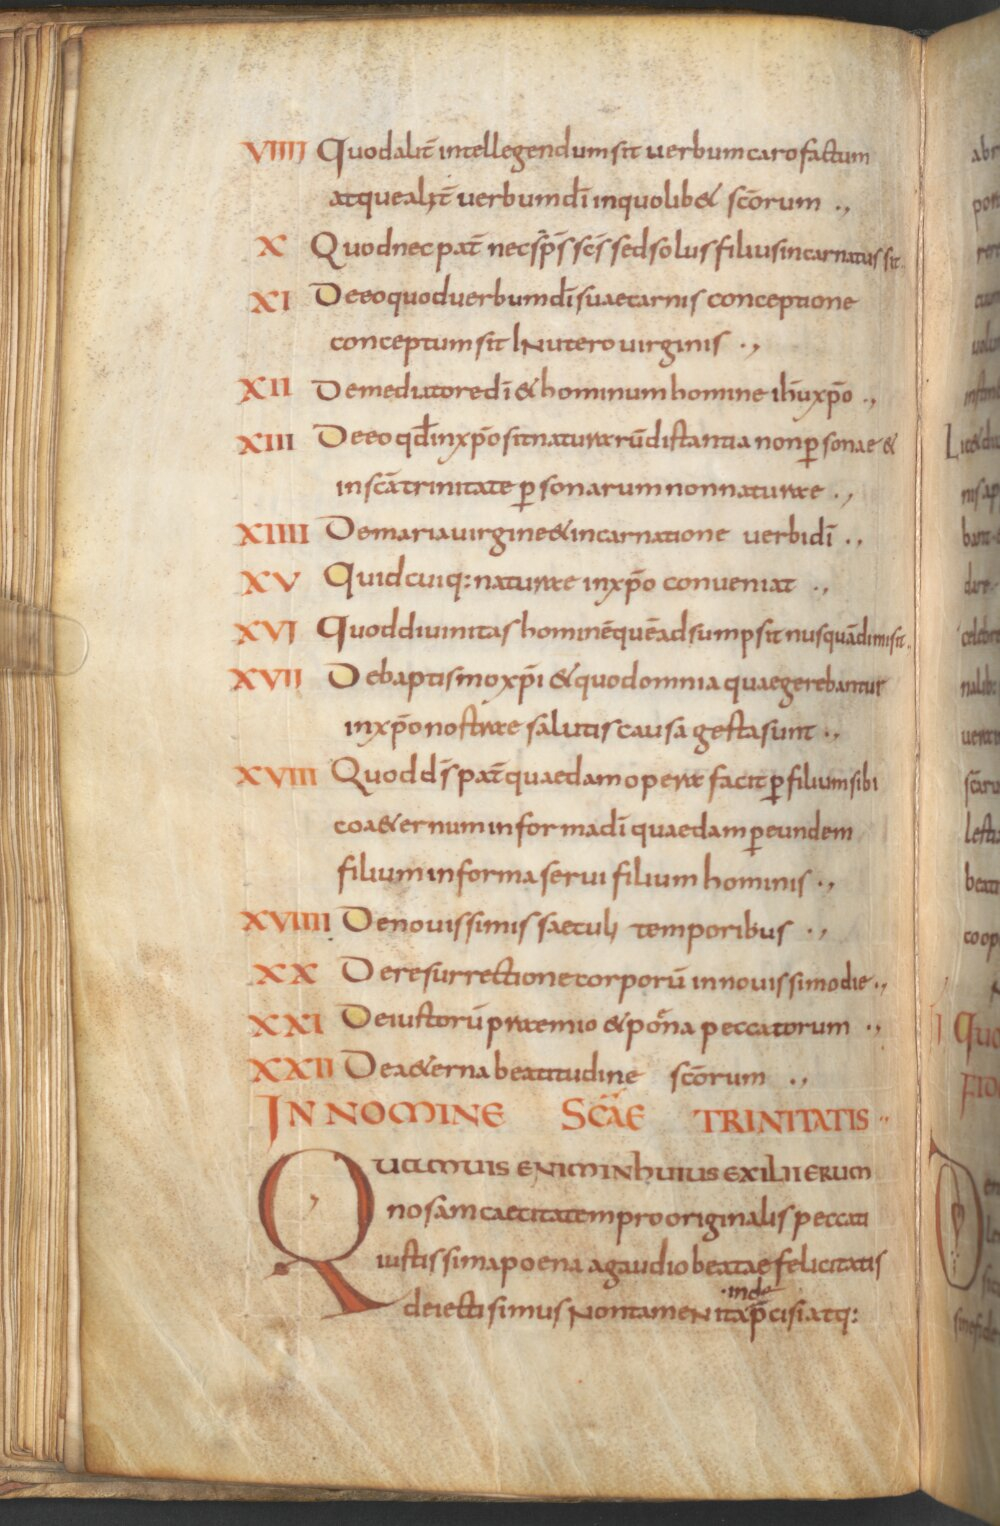 VIIII Quod alit̄ intellegendum sit uerbum caro factum
atque alit̄ uerbum dī in quolib& sc̄orum .,
X Quod nec pat̄ nec sp̄s sc̄s sed solus filius incarnatus sit.,
XI De eo quod uerbum dī suae carnis conceptione
conceptum sit IN utero uirginis .,
XII De mediatore dī & hominum homine ihū xp̄o .,
XIII De eo qd̄ in xp̄o sit naturarū distantia non p̱sonae &
in scā trinitate p̱sonarum non naturae .,
XIIII De maria uirgine & incarnatione uerbi dī .,
XV Quid cuiq: naturae in xp̄o conueniat .,
XVI Quod diuinitas hominē quē adsumpsit nusquā dimisit.,
XVII De baptismo xp̄i & quod omnia quae gerebantur
in xp̄o nostrae salutis causa gesta sunt .,
XVIII Quod ds̄ pat̄ quaedam opera facit p̱ filium sibi
coa&ernum in forma dī quaedam p̱ eundem
filium in forma serui filium hominis .,
XVIIII De nouissimis saeculi temporibus .,
XX De resurrectione corporū in nouissimo die .,
XXI De iustorū praemio & poena peccatorum .,
XXII De a&erna beatitudine sc̄orum .,
IN NOMINE SC̄AE TRINITATIS
QUAMUIS ENIM IN HUIUS EXILII ERUM
nosam caecitatem pro originalis peccati
iustissima poena a gaudio beatae felicitatis
deiecti simus NON tameN ita inde p̄cisi atq: